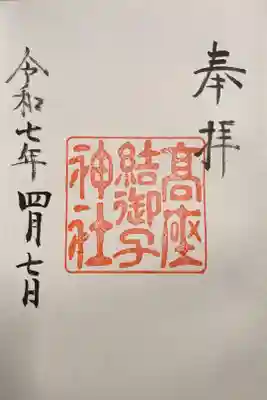 奉拝
髙座
結御子
神社
令和七年 四月七日